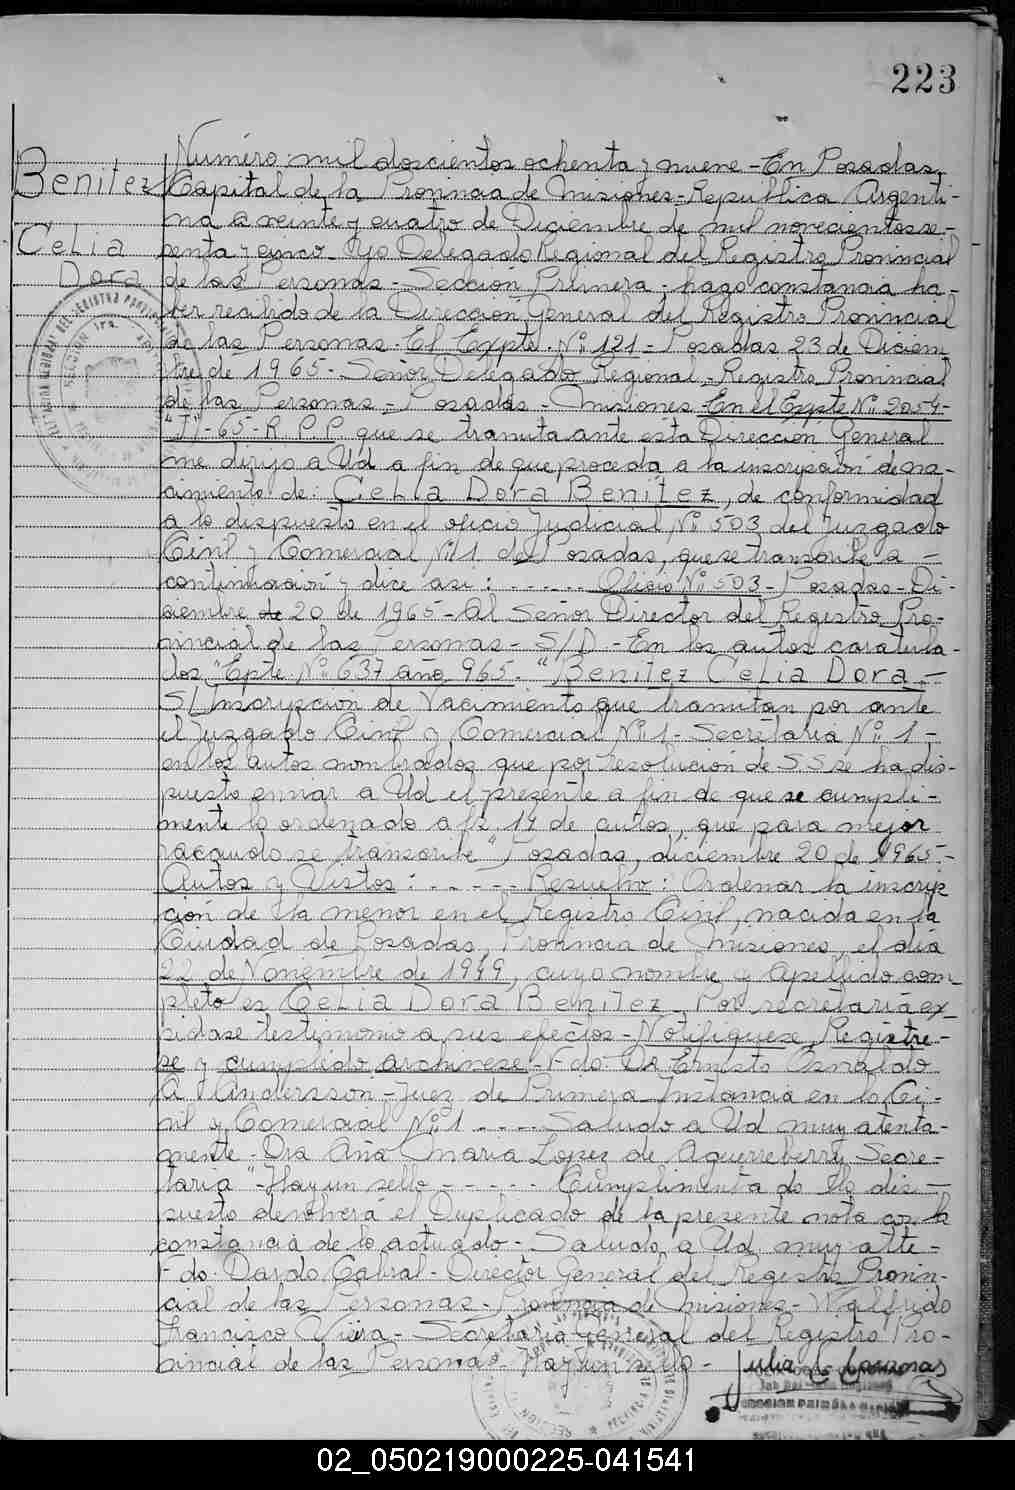 223
Benitez
Celia
Dora
Número mil doscientos ochenta y nueve - En Posadas,
Capital de la Provincia de Misiones - República Argenti-
na a veinte y cuatro de Diciembre de mil novecientos se-
senta y cinco - Yo Delegado Regional del Registro Provincial
de las Personas - Sección Primera - hago constancia ha-
ber recibido de la Direccion General del Registro Provincial
de las Personas - El Expte. Nº 121 - Posadas 23 de Diciem
bre de 1965 - Señor Delegado Regional - Registro Provincial
de las Personas - Posadas - Misiones - En el Expte Nº 2054-
"J"-65-R.P.P. que se tramita ante esta Direccion General
me dirijo a Ud a fin de que proceda a la inscripcion de na-
cimiento de: Celia Dora Benitez, de conformidad
a lo dispuesto en el oficio Judicial Nº 503 del Juzgado
Civil y Comercial Nº 1 de Posadas, que se transcribe a -
continuación y dice asi: ------ Oficio Nº 503 - Posadas - Di-
ciembre de 20 de 1965 - Al Señor Director del Registro Pro-
vincial de las Personas - S/D - En los autos caratula-
dos "Epte. Nº 637 año 965. "Benitez Celia Dora -
S/Inscripcion de Nacimiento que tramitan por ante
el Juzgado Civil y Comercial Nº 1 - Secretaria Nº 1 -
en los autos nombrados que por resolucion de S.S se ha dis-
puesto enviar a Ud el presente a fin de que se cumpli-
mente lo ordenado a fs 14 de autos, que para mejor
racaudo se transcribe "Posadas, diciembre 20 de 1965 -
Autos y Vistos: ----- Resuelvo: Ordenar la inscrip
ción de la menor en el Registro Civil, nacida en la
Ciudad de Posadas, Provincia de Misiones, el dia
22 de Noviembre de 1949, cuyo nombre y apellido com-
pleto es Celia Dora Benitez - Por secretaria ex-
pidase testimonio a sus efectos - Notifiquese, Registre-
se y cumplido archivese - Fdo. Dr Ernesto Osvaldo
A. Andersson - Juez de Primera Instancia en lo Ci-
vil y Comercial Nº 1 ---- Saludo a Ud muy atenta-
mente - Dra Ana Maria Lopez de Aguerreberry Secre-
taria" - Hay un sello ----- Cumplimentado lo dis-
puesto devolverá el Duplicado de la presente nota con la
constancia de lo actuado - Saludo a Ud. muy atte -
Fdo. Dardo Cabral - Director General del Registro Provin-
cial de las Personas - Provincia de Misiones - Walfrido
Francisco Viera - Secretaria General del Registro Pro-
vincial de las Personas - Hay un sello -
02_050219000225-041541